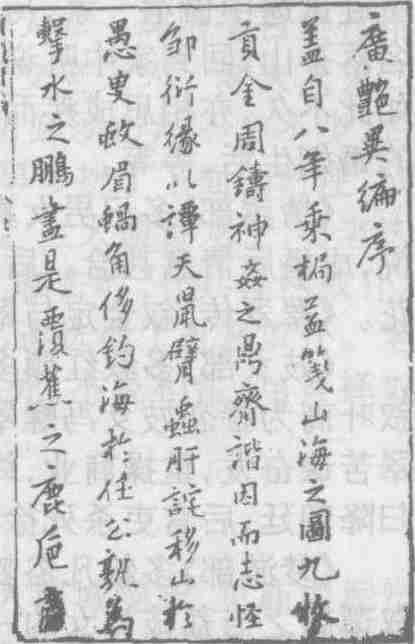 廣艷異編序
蓋自八年乘槎益箋山海之圖九牧
貢金周鑄神姦之鼎齊諧因而志怪
鄒衍緣以譚天鼠臂蟲肝詫移山於
愚叟蚊眉蝸角侈釣海於任公孰為
擊水之鵬盡是覆蕉之鹿卮